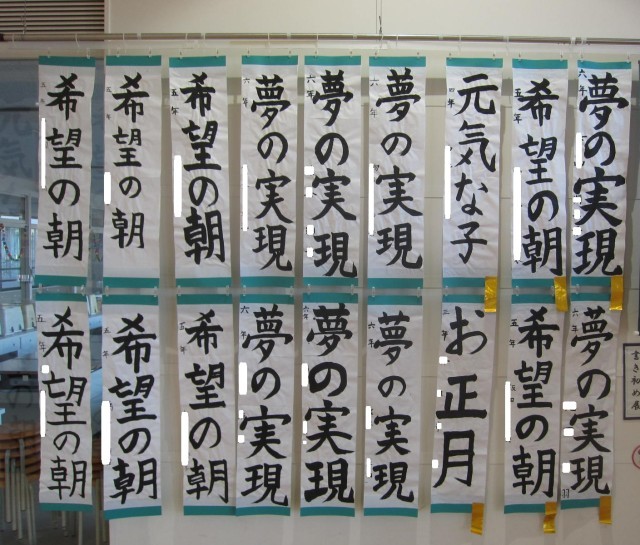 夢の実現
六年
希望の朝
五年
元気な子
四年
夢の実現
六年
夢の実現
六年
夢の実現
六年
希望の朝
五年
希望の朝
五年
希望の朝
五年
夢の実現
六年
希望の朝
五年
お正月
三年
夢の実現
六年
夢の実現
六年
夢の実現
六年
希望の朝
五年
希望の朝
五年
希望の朝
五年
書き初め展